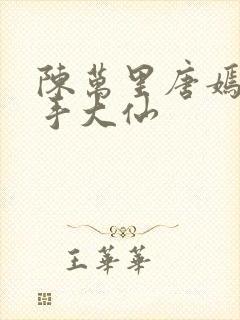 陳萬里唐嫣
手大仙
王華華